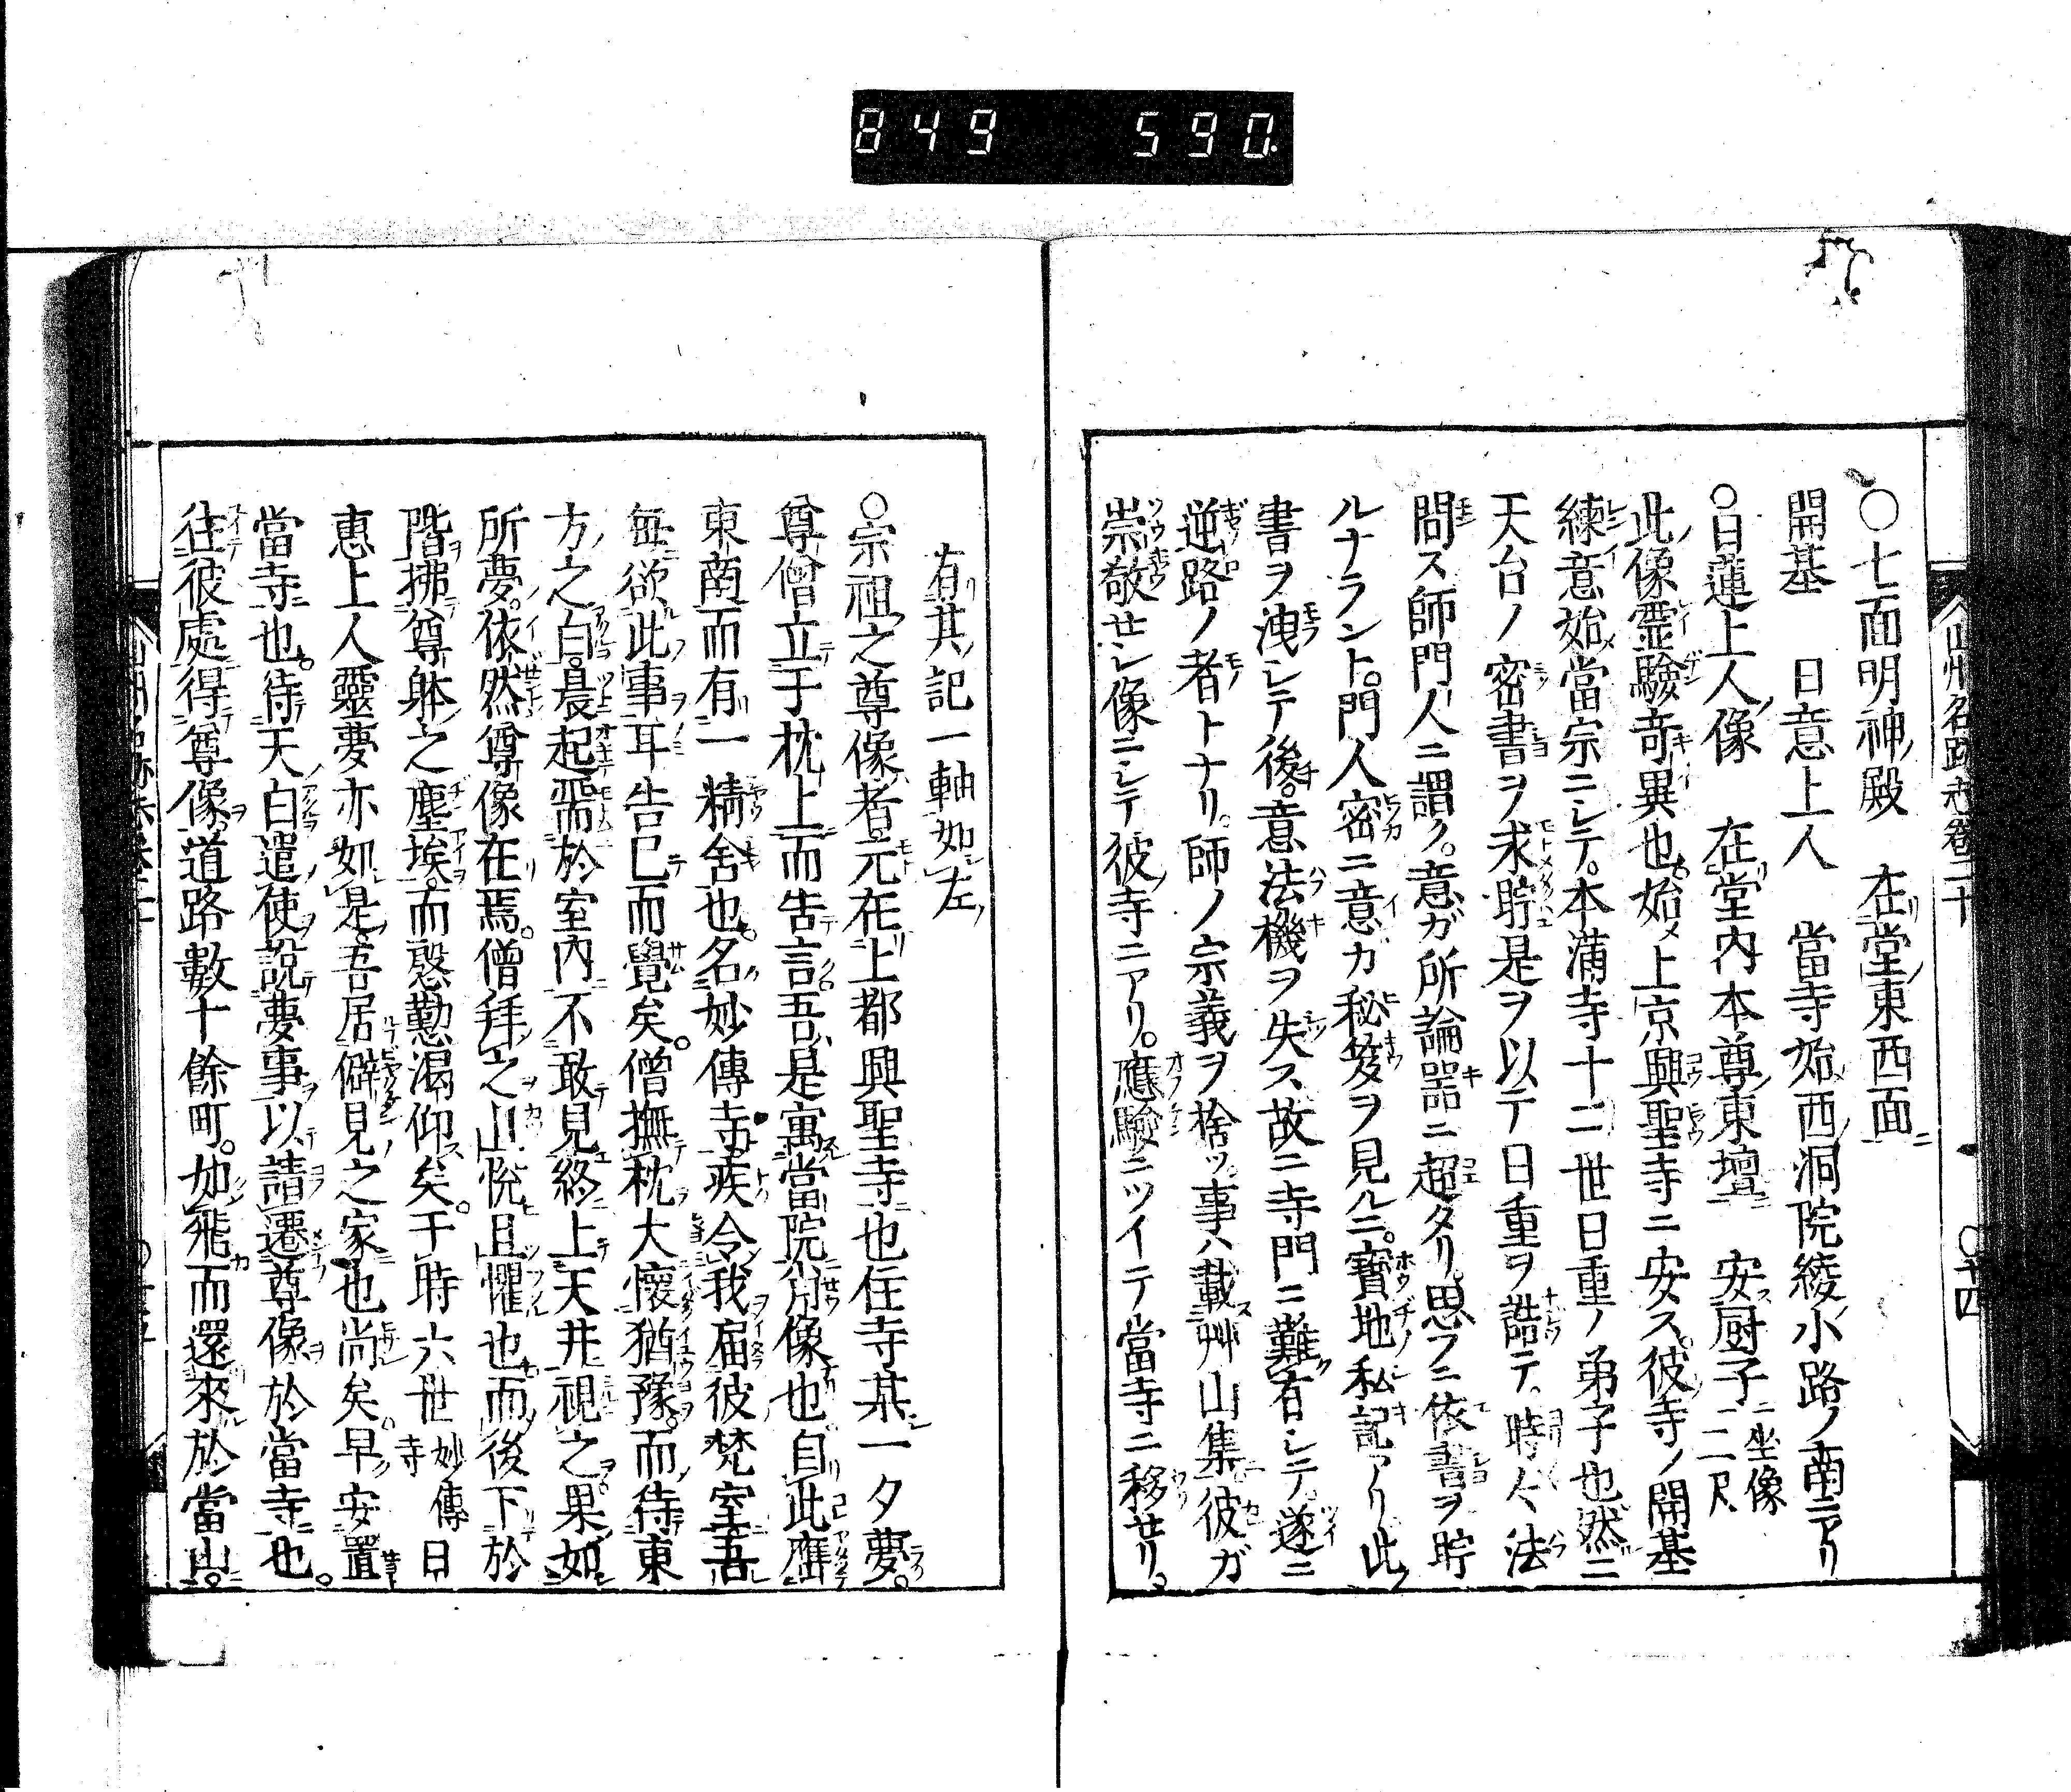 849 590.
山州名跡志卷二十
○十四
○七面明神殿 在堂東西面
開基 日意上人 當寺始西洞院綾小路ノ南ニアリ
○日蓮上人像 在堂內本尊東壇 安厨子 坐像二尺
此像霊驗竒異也始メ上京興聖寺ニ安ス彼寺ノ開基
練意始當宗ニシテ本滿寺十二世日重ノ弟子也然ニ
天台ノ密書ヲ求貯是ヲ以テ日重ヲ詰テ時々法
問ス師門人ニ謂ク意ガ所論器ニ超タリ思フニ依書ヲ貯
ルナラント門人密ニ意ガ秘笈ヲ見ルニ寶地私記アリ此
書ヲ洩シテ後意法機ヲ失ス故ニ寺門ニ難有シテ遂ニ
逆路ノ者トナリ師ノ宗義ヲ捨ツ事ハ載艸山集彼ガ
崇敬セシ像ニシテ彼寺ニアリ應驗ニツイテ當寺ニ移セリ
有其記一軸如左
○宗祖之尊像者元在上都興聖寺也住寺某一夕夢
尊僧立于枕上而告言吾是寓當院肖像也自此應
東南而有一精舍也名妙傳寺疾令我届彼梵室吾
毎欲此事耳告已而覺矣僧撫枕大懷猶豫而待東
方之白晨起需於室內不敢見終上天井視之果如
所夢依然尊像在焉僧拜之且悅且懼也而後下於
階拂尊躰之塵埃而慇懃渴仰矣于時六世妙傳寺日
惠上人靈夢亦如是吾居僻見之家也尚矣早安置
當寺也待天白遣使說夢事以請遷尊像於當寺也
往彼處得尊像道路數十餘町如飛而還來於當山